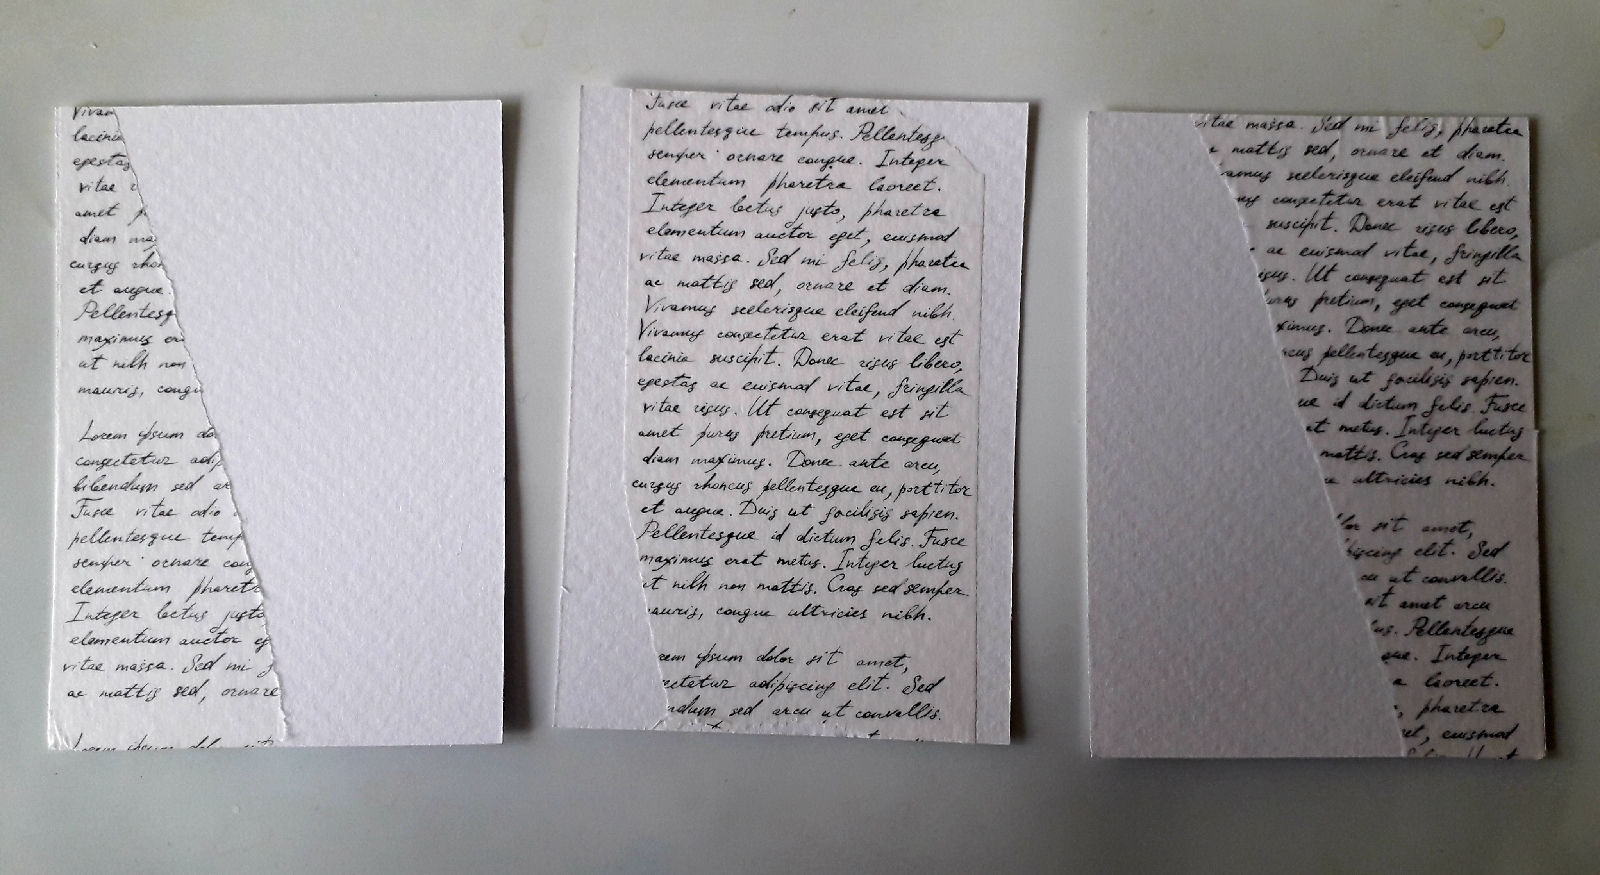 Vivam
lacinia
egestas
vitae r
amet p
diam ma
cursus rhon
et augue.
Pellentesq
maximus er
ut nibh non
mauris, congu
Lorem ipsum do
consectetur adip
bibendum sed ar
Fusce vitae odio
pellentesque temp
semper ornare cong
elementum pharetr
Integer lectus justo
elementum auctor eg
vitae massa. Sed mi f
ac mattis sed, ornare
Lorem ipsum dolor sit
Fusce vitae odio sit amet
pellentesque tempus. Pellentesq
semper ornare congue. Integer
elementum pharetra laoreet.
Integer lectus justo, pharetra
elementum auctor eget, euismod
vitae massa. Sed mi felis, pharetra
ac mattis sed, ornare et diam.
Vivamus scelerisque eleifend nibh.
Vivamus consectetur erat vitae est
lacinia suscipit. Donec risus libero,
egestas ac euismod vitae, fringilla
vitae risus. Ut consequat est sit
amet purus pretium, eget consequat
diam maximus. Donec ante arcu,
cursus rhoncus pellentesque eu, porttitor
et augue. Duis ut facilisis sapien.
Pellentesque id dictum felis. Fusce
maximus erat metus. Integer luctus
ut nibh non mattis. Cras sed semper
mauris, congue ultricies nibh.
rem ipsum dolor sit amet,
ectetur adipiscing elit. Sed
ndum sed arcu ut convallis.
vitae massa. Sed mi felis, pharetra
c mattis sed, ornare et diam.
amus scelerisque eleifend nibh.
us consectetur erat vitae est
suscipit. Donec risus libero,
ac euismod vitae, fringilla
isus. Ut consequat est sit
purus pretium, eget consequat
ximus. Donec ante arcu,
ncus pellentesque eu, porttitor
Duis ut facilisis sapien.
ue id dictum felis. Fusce
at metus. Integer luctus
mattis. Cras sed semper
e ultricies nibh.
lor sit amet,
piscing elit. Sed
cu ut convallis.
sit amet arcu
us. Pellentesque
gue. Integer
a laoreet.
, pharetra
et, euismod